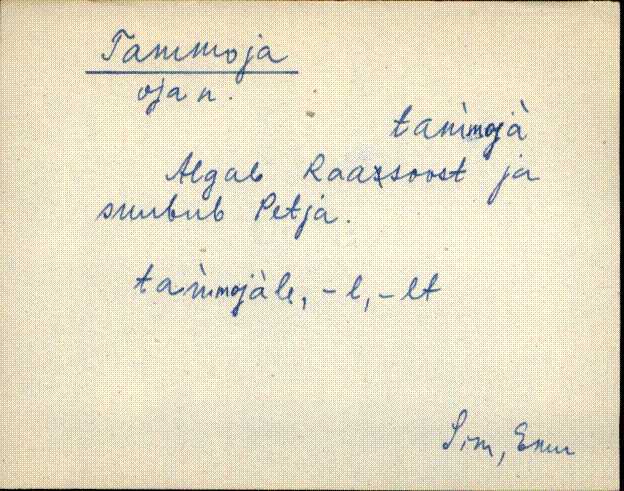 Tammoja
oja n.
tam̀mojà
Algab Raazsoost ja
suubub Petja.
tam̀mojàle, -l, -lt
Sim, Emu